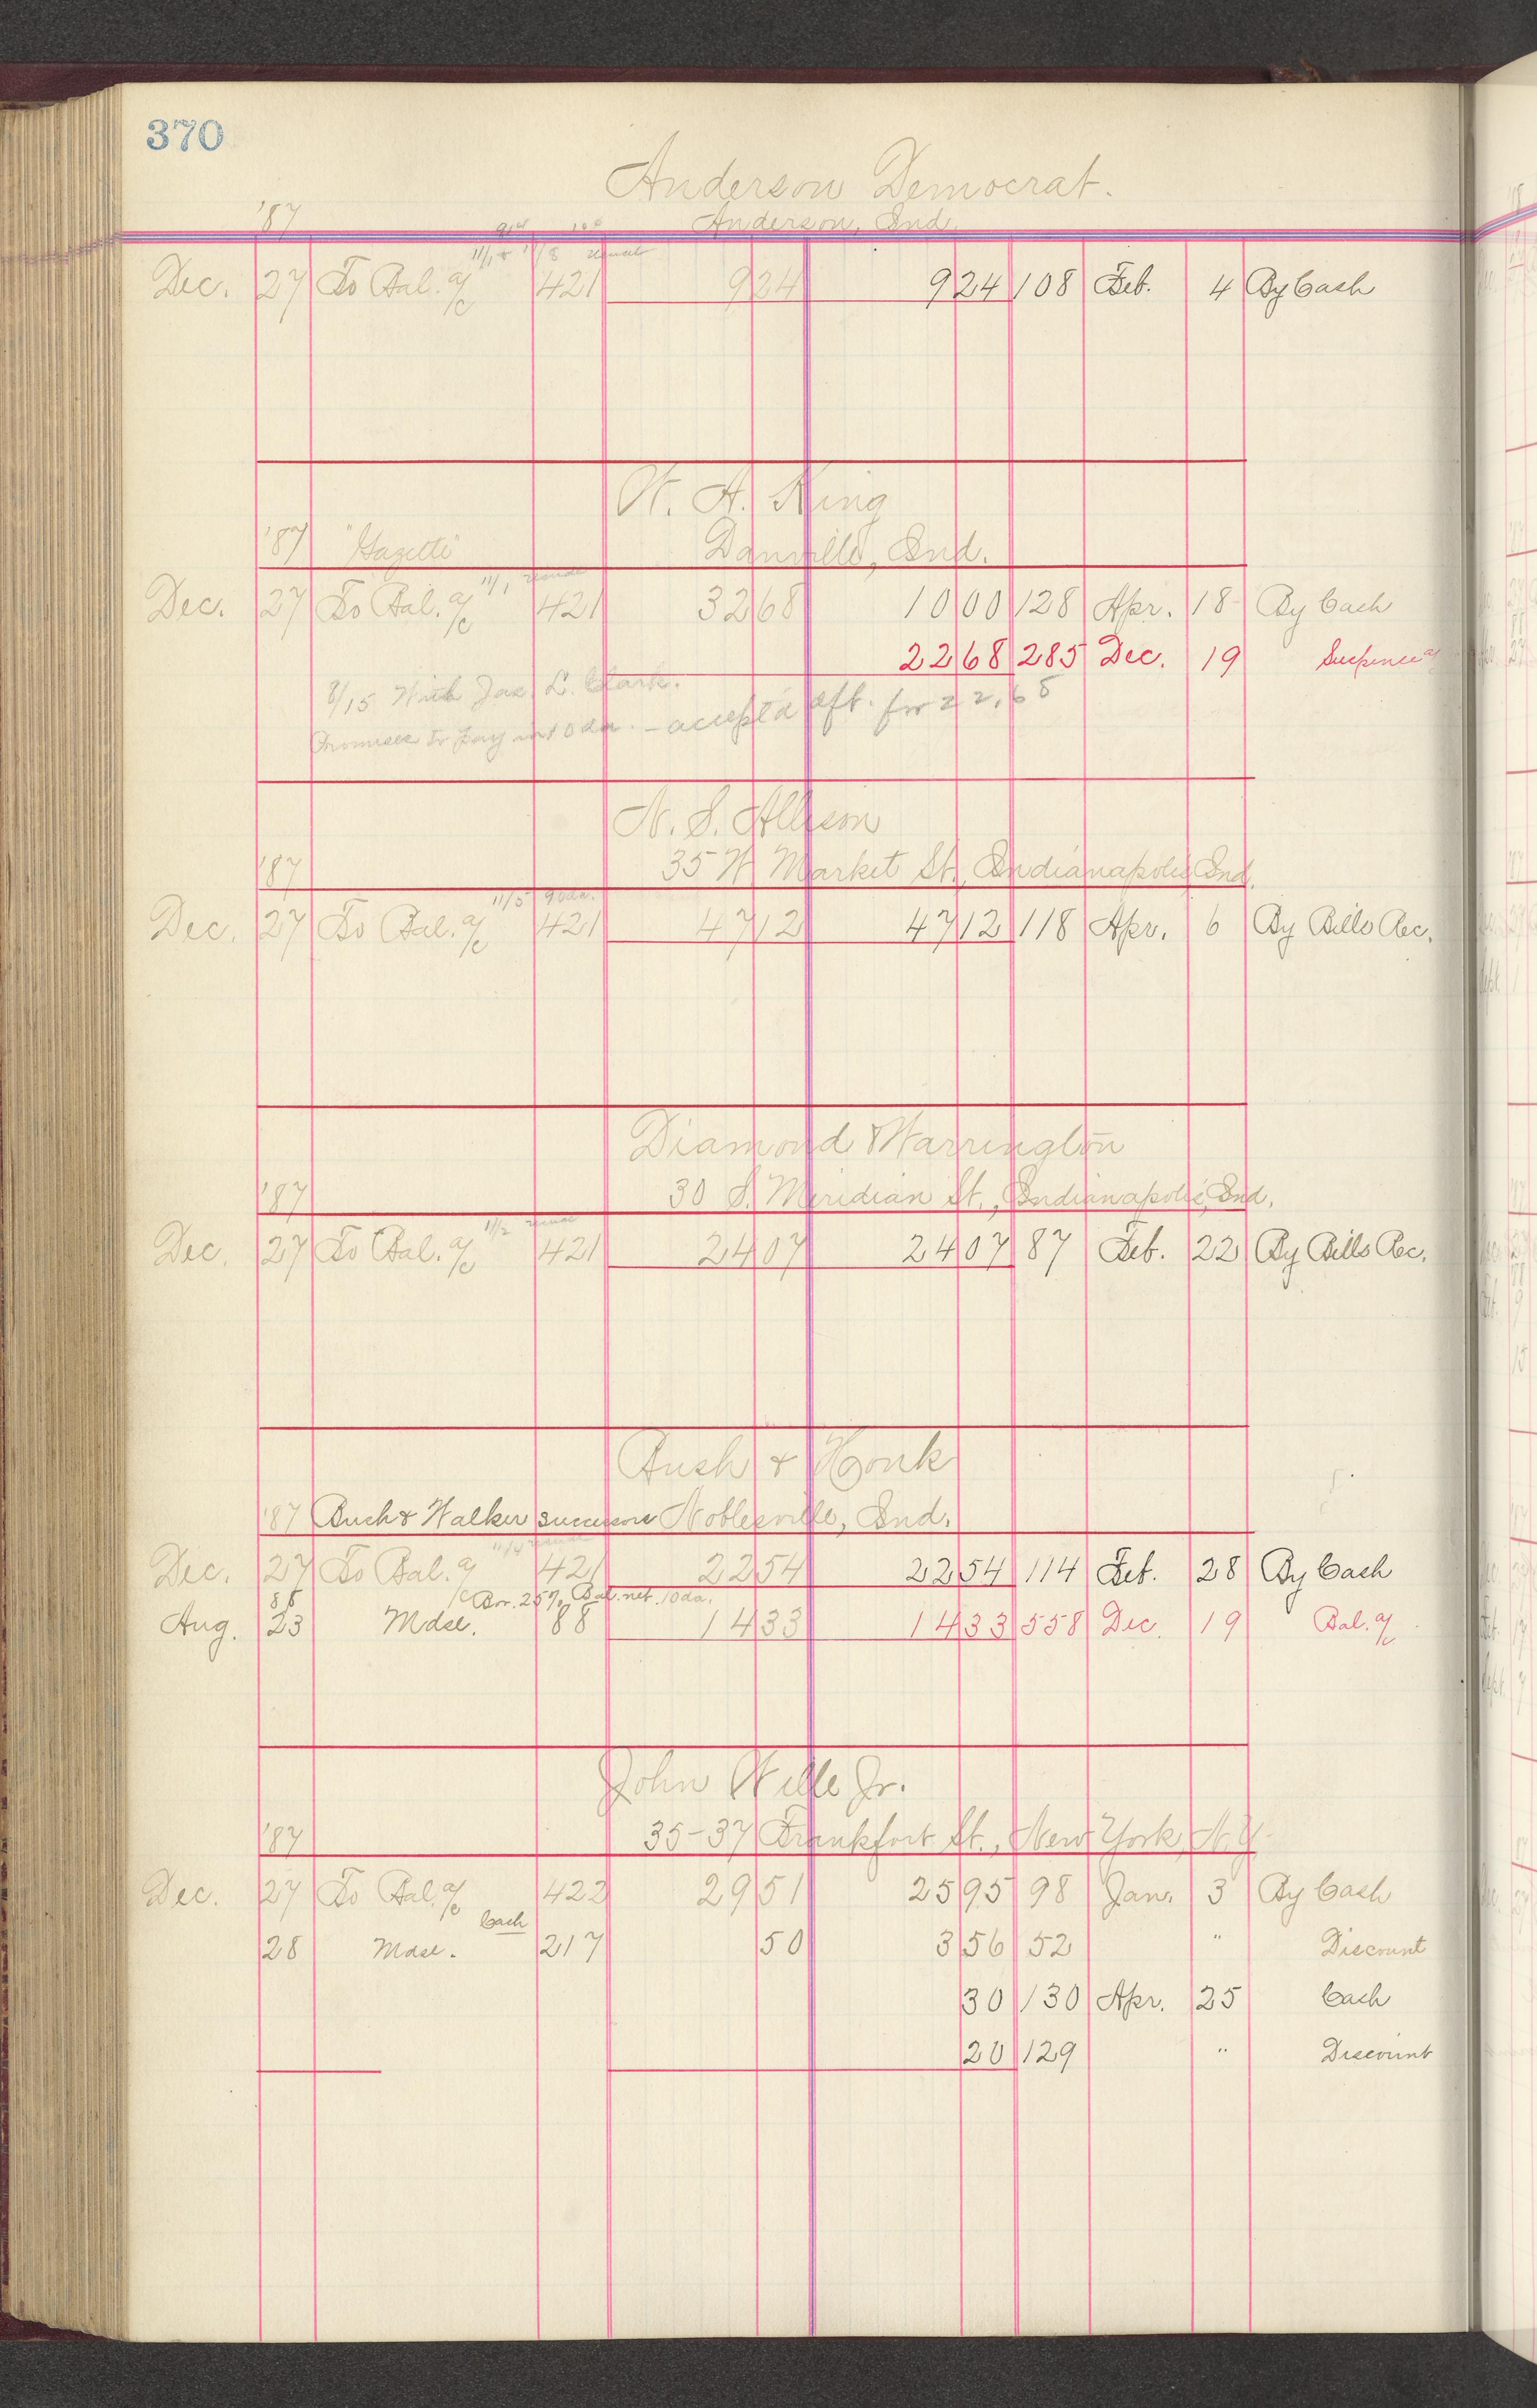 370
Anderson Democrat.
'87 Anderson, Ind.
Dec. 27 To Bal. a/c 421 924 924 108 Feb. 4 By Cash
W. A. King
'87 "Gazette" Danville, Ind.
11/1
Dec. 27 To Bal. a/c 421 3268 1000 128 Apr. 18 By Cash
2268 285 Dec. 19 Suspence a/c
8/15 With Jas L. Clark.
Promises to pay in 10 da. — accept'd dft. for 22.68
N. S. Allison
'87 35 W Market St., Indianapolis Ind.
11/5 90 da.
Dec. 27 To Bal. a/c 421 4712 4712 118 Apr. 6 By Bills Rec.
Diamond Warrington
'87 30 S. Meridian St., Indianapolis, Ind.
11/2
Dec. 27 To Bal. a/c 421 2407 2407 87 Feb. 22 By Bills Rec.
Bush & Honk
'87 Bush & Walker successors Noblesville, Ind.
11/4
Dec. 27 To Bal. a/c 421 2254 2254 114 Feb. 28 By Cash
88 Bor. 25% Bal. net 10 da.
Aug. 23 Mdse. 88 1433 1433 558 Dec. 19 Bal. a/c
John Wille Jr.
'87 35-37 Frankfort St., New York, N.Y.
Dec. 27 To Bal. a/c 422 2951 2595 98 Jan. 3 By Cash
Cash
28 Mdse. 217 50 356 52 " Discount
30 130 Apr. 25 Cash
20 129 " Discount